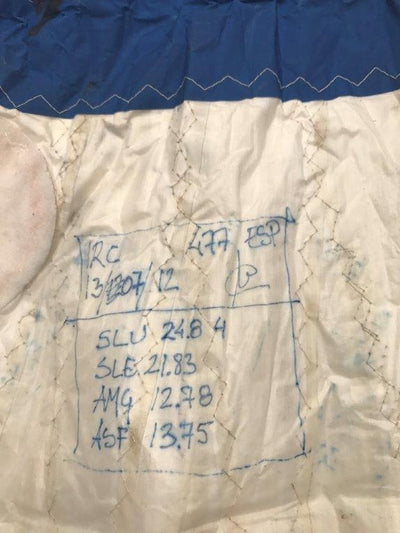 IRC 477 ESP
13/07/12
SLU 24.84
SLE 21.83
AMG 12.78
ASF 13.75